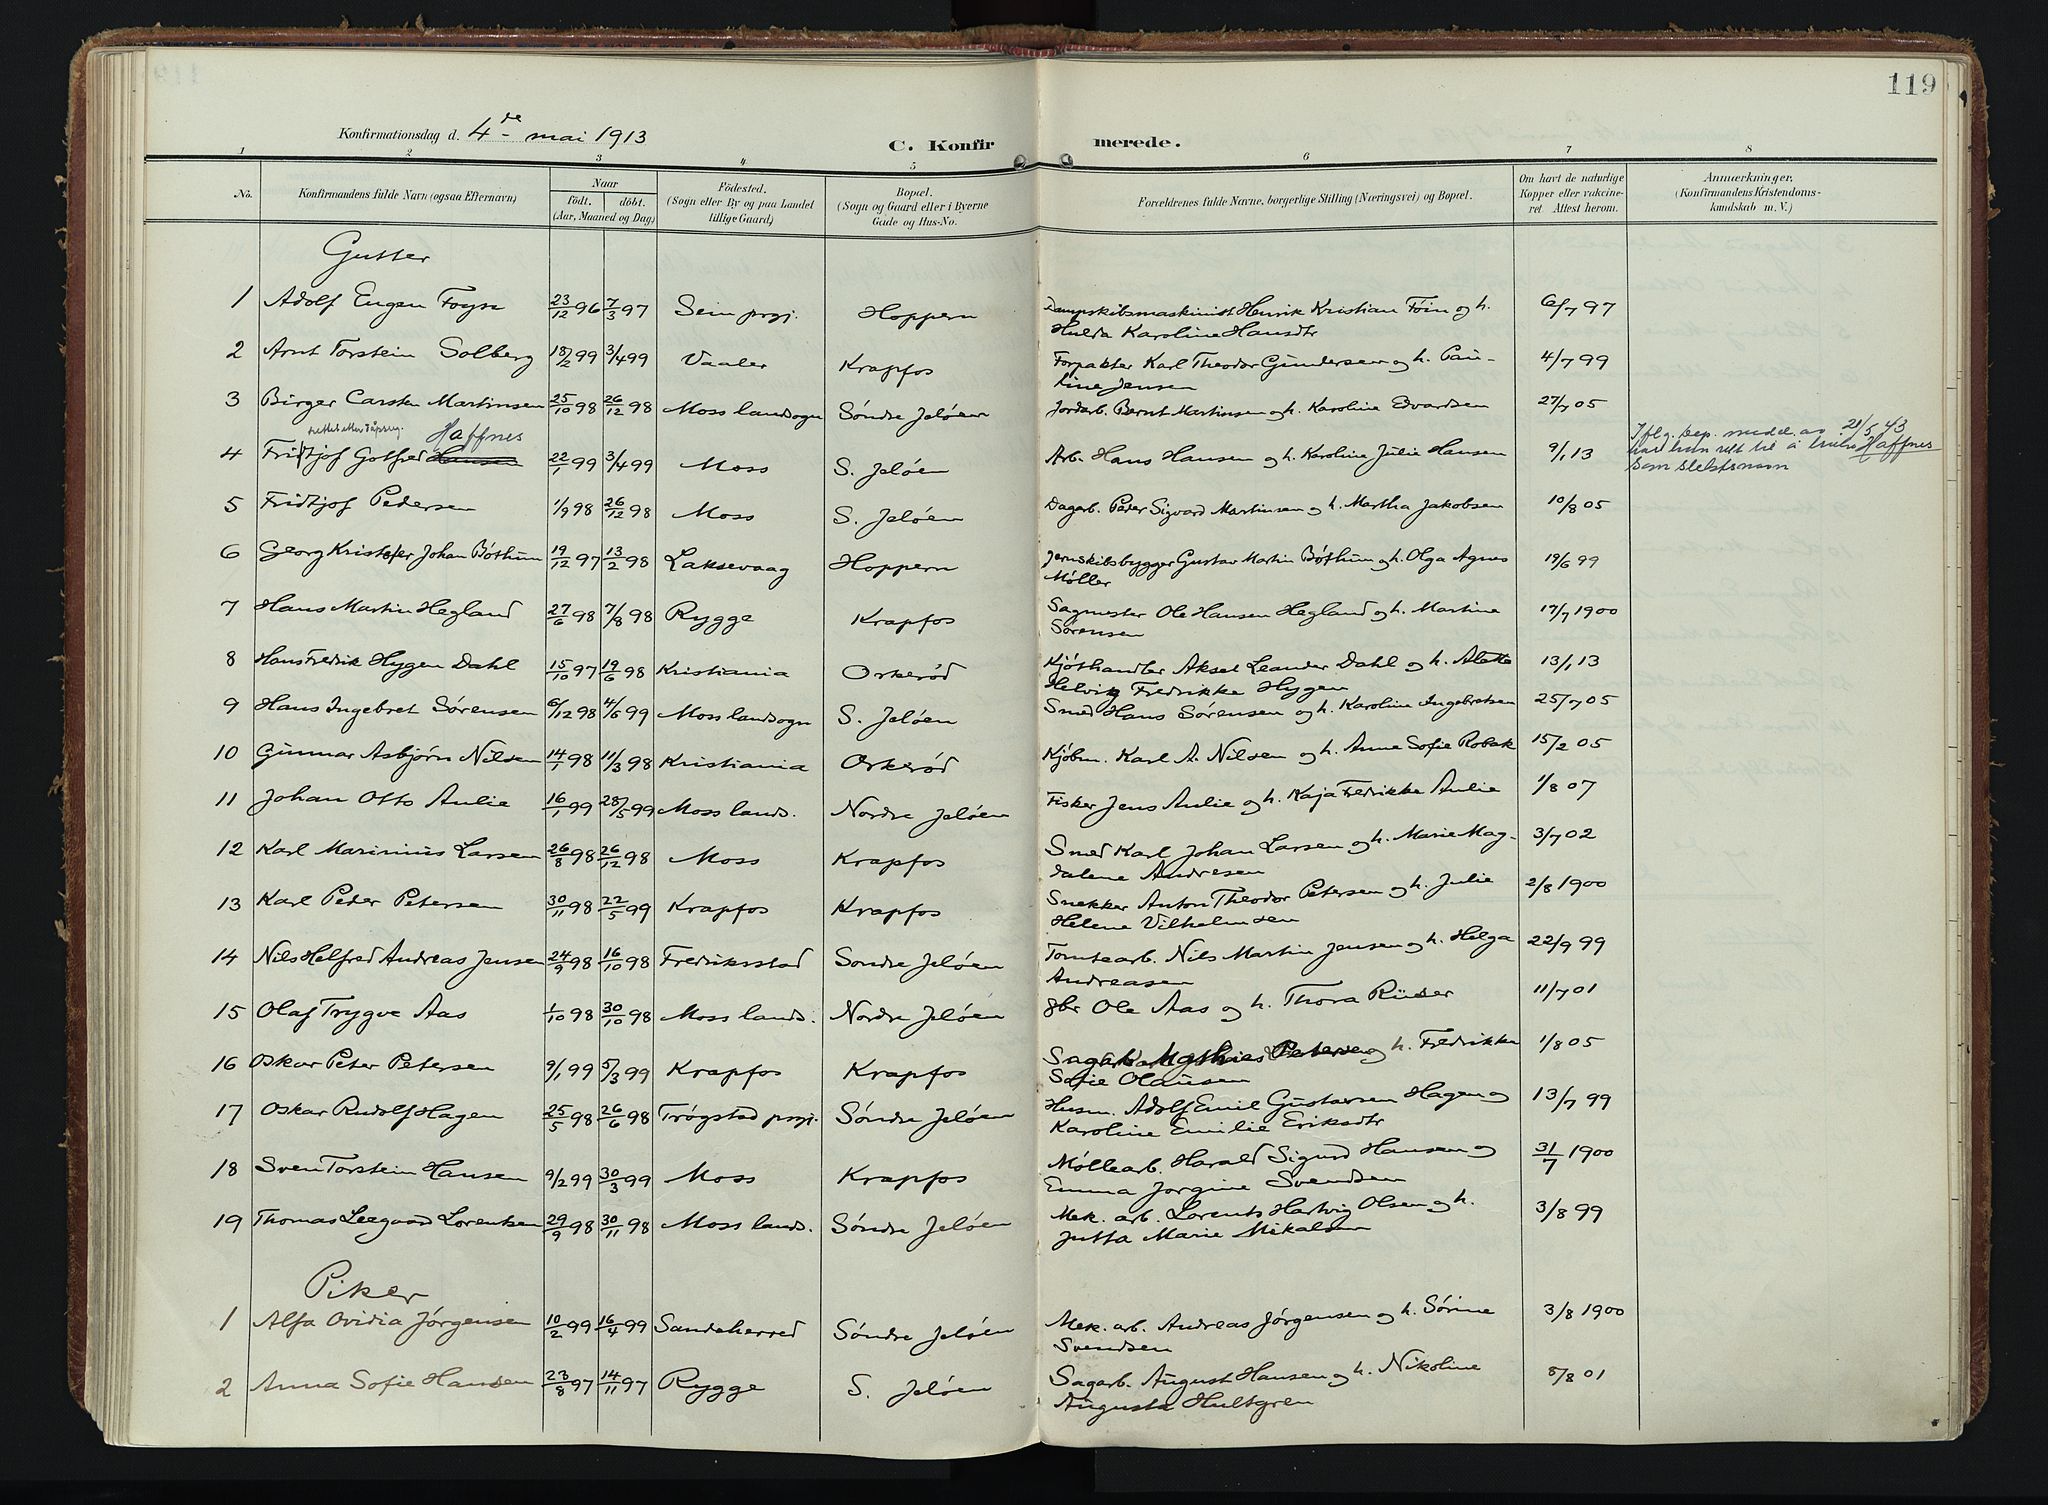 119
Konfirmationsdag d. 4de mai 1913
C. Konfirmerede.
1 2 3 4 5 6 7 8
No. Konfirmandens fulde Navn (ogsaa Efternavn) Naar født. døbt. (Aar, Maaned og Dag) Födested. (Sogn eller By og paa Landet tillige Gaard) Bopæl. (Sogn og Gaard eller i Byerne Gade og Hus-No. Forældrenes fulde Navne, borgerlige Stilling (Næringsvei) og Bopæl. Om havt de naturlige Kopper eller vakcineret Attest herom. Anmærkninger. (Konfirmandens Kristendomskundskab m. V.)
Gutter
1 Adolf Eugen Foyn 23/12 96 7/3 97 Sem prgj. Hoppern Dampskibsmaskinist Henrik Kristian Föin og h. 6/7 97
Hulda Karoline Hansdtr
2 Arnt Torstein Solberg 18/2 99 3/4 99 Vaaler Krapfos Forpakter Karl Theodor Gundersen og h. Pau- 4/7 99
line Jensen
3 Birger Carsten Martinsen 25/10 98 26/12 98 Moss landsogn Söndre Jelöen Jordarb. Bernt Martinsen og h. Karoline Edvardsen 27/7 05
rettet etter dåpsreg. Haffnes
4 Fridtjof Gotfred Hansen 22/1 99 3/4 99 Moss S. Jelöen Arb. Hans Hansen og h. Karoline Julie Hansen 9/1 13 Iflg. bep. meddel. av 21/5 43
har han rett til å bruke Haffnes
som slektsnavn
5 Fridtjof Pedersen 1/9 98 26/12 98 Moss S. Jelöen Dagarb. Peder Sigvard Martinsen og h. Martha Jakobsen 10/8 05
6 Georg Kristofer Johan Böthum 19/12 97 13/2 98 Laksevaag Hoppern Jernskibsbygger Gustav Martin Böthum og h. Olga Agnes 19/6 99
Møller
7 Hans Martin Hegland 27/6 98 7/8 98 Rygge Krapfos Sagmester Ole Hansen Hegland og h. Martine 17/7 1900
Sörensen
8 Hans Fredrik Hygen Dahl 15/10 97 19/6 98 Kristiania Orkeröd Kjöthandler Aksel Leander Dahl og h. Alette 13/1 13
Helvig Fredrikke Hygen
9 Hans Ingebret Sørensen 6/12 98 4/6 99 Moss landsogn S. Jelöen Smed Hans Sörensen og h. Karoline Ingebretsen 25/7 05
10 Gunnar Asbjørn Nilsen 14/1 98 11/3 98 Kristiania Orkeröd Kjöbm. Karl A. Nilsen og h. Anne Sofie Robak 15/2 05
11 Johan Otto Aulie 16/1 99 28/5 99 Moss lands. Nordre Jelöen Fisker Jens Aulie og h. Kaja Fredrikke Aulie 1/8 07
12 Karl Marinius Larsen 26/8 98 26/12 98 Moss Krapfos Smed Karl Johan Larsen og h. Marie Mag- 3/7 02
dalene Andresen
13 Karl Peder Petersen 30/11 98 22/5 99 Krapfos Krapfos Snekker Anton Theodor Petersen og h. Julie 2/8 1900
Helene Vilhelmsen
14 Nils Helfred Andreas Jensen 24/9 98 16/10 98 Fredriksstad Sondre Jelöen Tomtearb. Nils Martin Jensen og h. Helga 22/9 99
Andreasen
15 Olaf Trygve Aas 1/10 98 30/10 98 Moss lands. Nordre Jelöen gbr Ole Aas og h. Thora Rüder 11/7 01
16 Oskar Peter Petersen 9/1 99 5/3 99 Krapfos Krapfos Sagarb. Mathias Petersen og h. Fredrikke 1/8 05
Sofie Olausen
17 Oskar Rudolf Hagen 25/5 98 26/6 98 Trögstad prgj. Söndre Jelöen Husm. Adolf Emil Gustavsen Hagen og 13/7 99
Karoline Emilie Eriksdtr
18 Sven Torstein Hansen 9/2 99 30/3 99 Moss Krapfos Möllearb. Harald Sigurd Hansen og 31/7 1900
Emma Jorgine Svendsen
19 Thomas Leegaard Lorentsen 29/9 98 30/11 98 Moss lands. Söndre Jelöen Mek. arb. Lorents Hartvig Olsen og h. 3/8 99
Jutta Marie Mikalsen
Piker
1 Alfa Ovidia Jørgensen 10/2 99 16/4 99 Sandeherred Söndre Jelöen Mek. arb. Andreas Jörgensen og h. Sörine 3/8 1900
Svendsen
2 Anna Sofie Hansen 23/8 97 14/11 97 Rygge S. Jelöen Sagarb. August Hansen og h. Nikoline 8/8 01
Augusta Hultgren